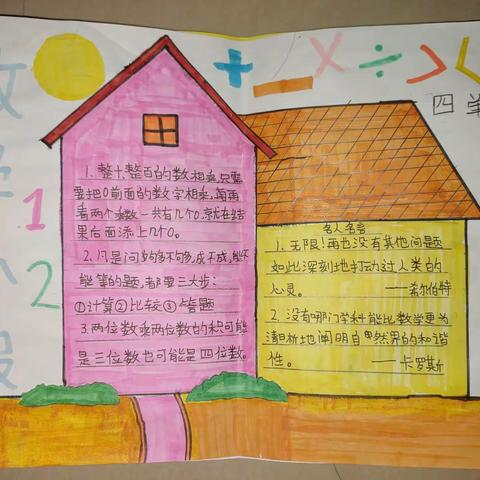 数学小报
+ - × ÷ > <
四单
1 2
1. 整十、整百的数相乘,只需
要把0前面的数字相乘,再再
看两个乘数一共有几个0,就在结
果后面添上几个0。
2. 凡是问够不够,成不成,能不
能等的题,都要三大步:
①计算②比较③答题
3. 两位数乘两位数的积可能
是三位数也可能是四位数。
名人名言
1. 无限!再也没有其他问题
如此深刻地打动过人类的
心灵。 ——希尔伯特
2. 没有哪门学科能比数学更为
清晰地阐明自然界的和谐
性。 ——卡罗斯